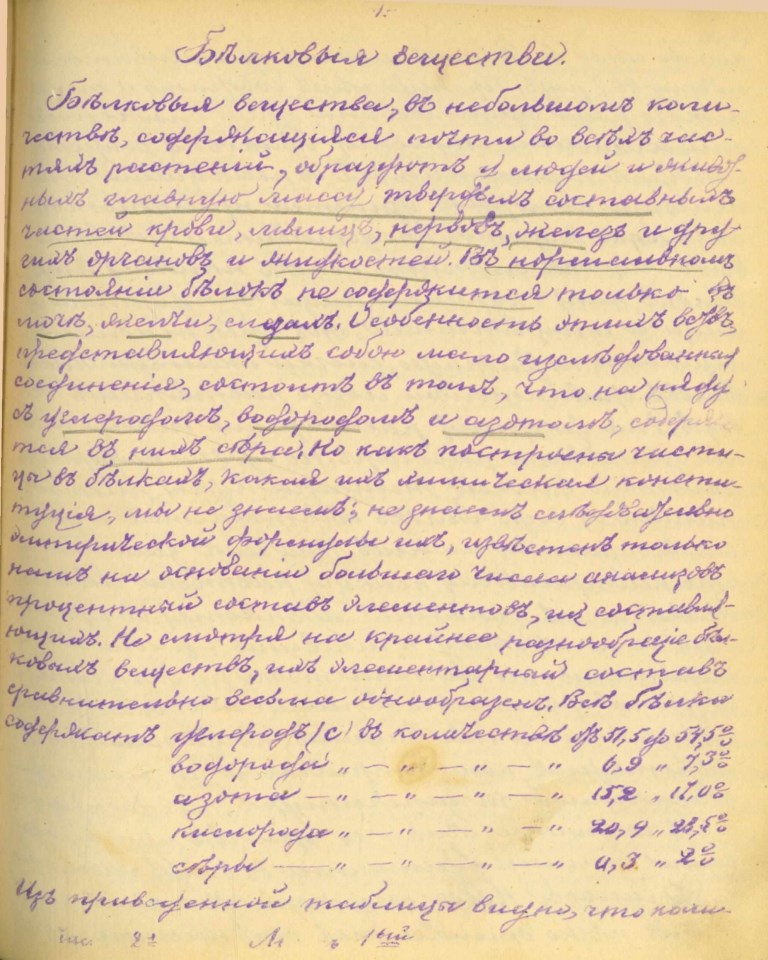 1.
Бѣлковыя вещества.
Бѣлковыя вещества, въ небольшомъ коли-
чествѣ, содержащіяся почти во всѣхъ час-
тяхъ растеній, образуютъ у людей и живот-
ныхъ главную массу твердыхъ составныхъ
частей крови, мышцъ, нервовъ, железъ и дру
гихъ органовъ и жидкостей. Въ нормальномъ
состояніи бѣлокъ не содержится только въ
мочѣ, желчи, слезахъ. Особенность этихъ
представляющихъ собою мало изслѣдованныя
соединенія, состоитъ въ томъ, что на ряду
съ углеродомъ, водородомъ и азотомъ, содержи
тся въ нихъ сѣра. Но какъ построены части-
цы въ бѣлкахъ, какая ихъ химическая консти-
туція, мы не знаемъ; не знаемъ слѣдовательно
эмпирической формулы ихъ, извѣстенъ только
намъ на основаніи большаго числа анализовъ
процентный составъ элементовъ, ихъ составля-
ющихъ. Не смотря на крайнее разнообразіе бѣл-
ковыхъ веществъ, ихъ элементарный составъ
сравнительно весьма однообразенъ. Всѣ бѣлки
содержатъ углеродъ (С) въ количествѣ отъ 51,5 до 54,5%
водорода „ — „ — „ — „ 6,9 „ 7,3%
азота — „ — „ — „ — „ 15,2 „ 17,0%
кислорода „ — „ — „ — „ 20,9 „ 23,5%
сѣры — „ — „ — „ — „ 0,3 „ 2%
Изъ приведенной таблицы видно, что коли